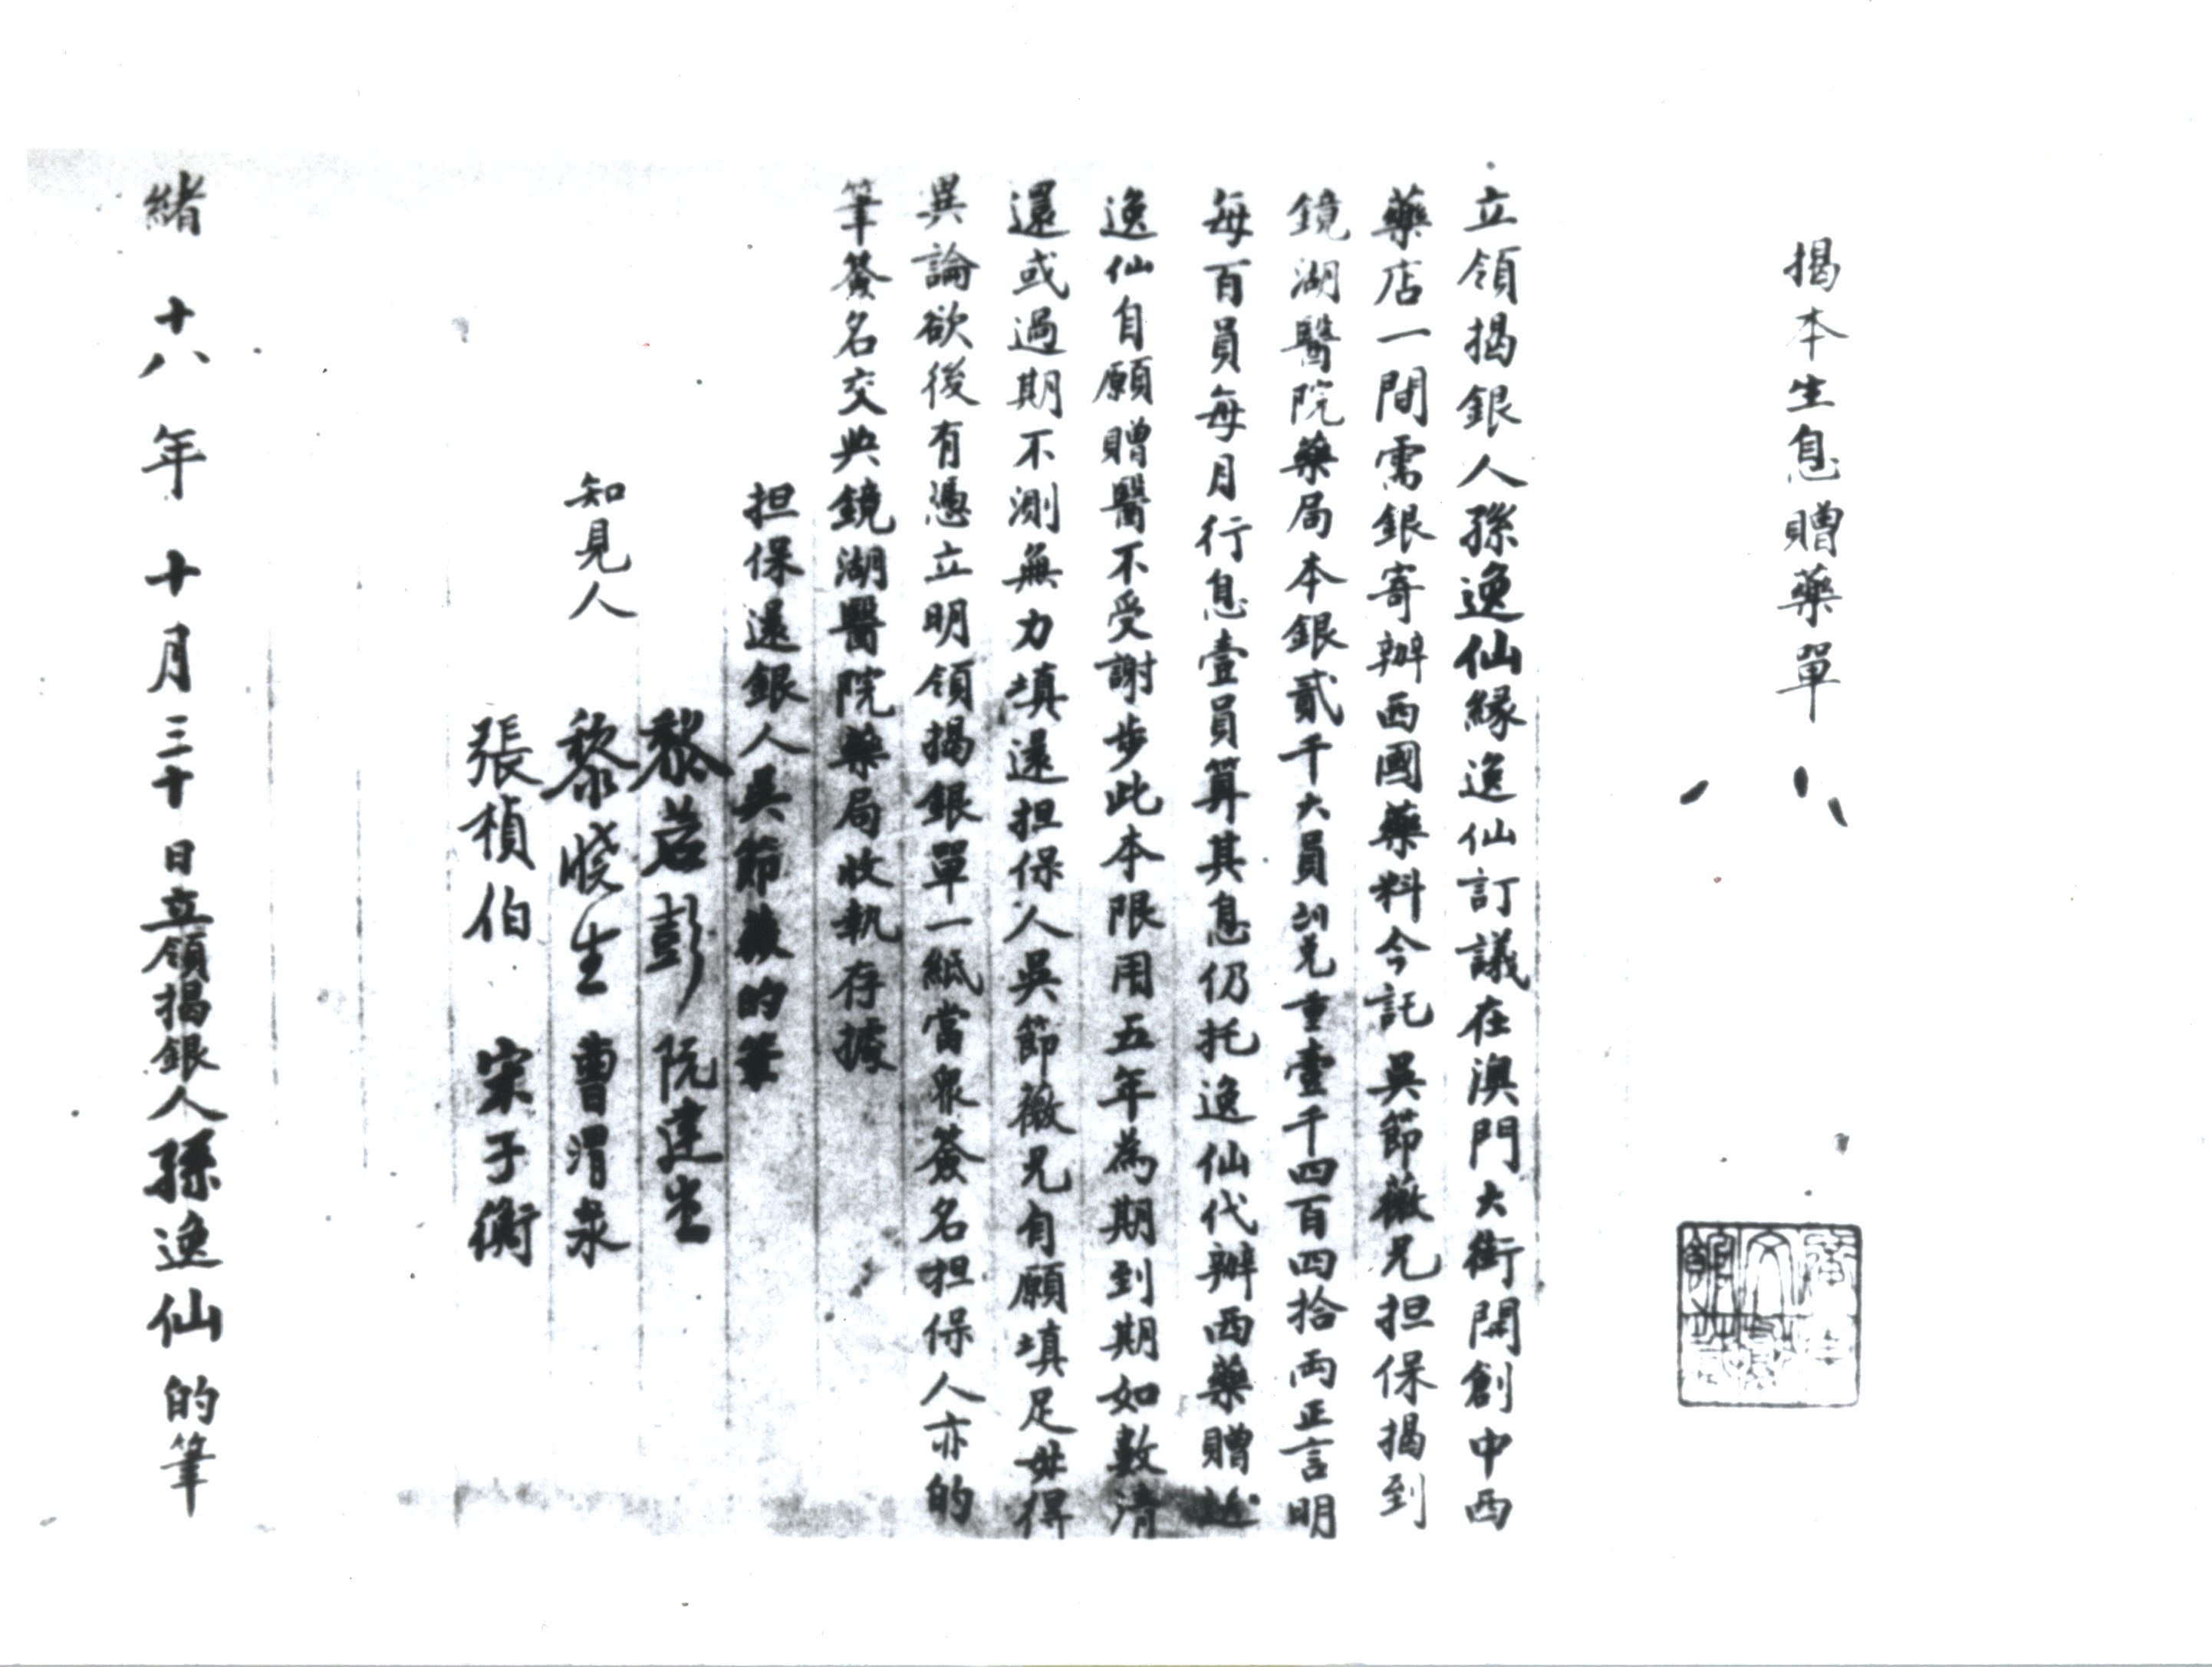 揭本生息贈藥單
立領揭銀人孫逸仙緣逸仙訂議在澳門大街開創中西
藥店一間需銀寄辦西國藥料今託吳節薇兄担保揭到
鏡湖醫院藥局本銀貳千大員訓兌重壹千四百四拾両正言明
每百員每月行息壹員算其息仍托逸仙代辦西藥贈送
逸仙自願贈醫不受謝步此本限用五年為期到期如數清
還或過期不測無力填還担保人吳節薇兄有願填足毋得
異論欲後有憑立明領揭銀單一紙當眾簽名担保人亦的
筆簽名交與鏡湖醫院藥局收執存據
担保還銀人吳節薇的筆
黎若彭 阮建堂
知見人 黎晓生 曹渭泉
張楨伯 宋子衡
緒十八年十月三十日立領揭銀人孫逸仙的筆